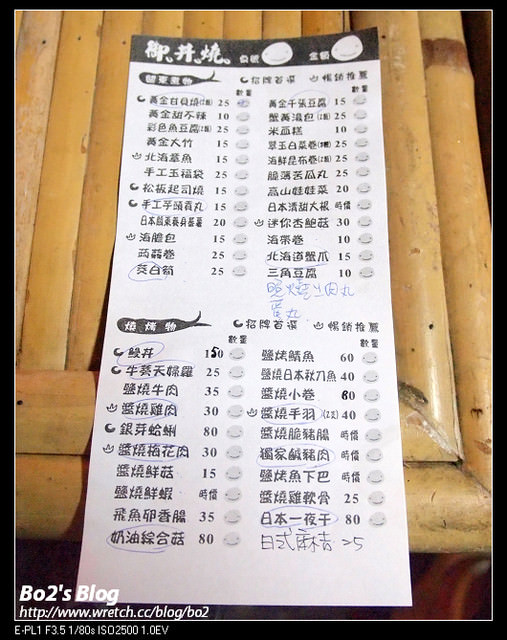 御丼燒 桌號 金額
關東煮物 招牌首選 暢銷推薦
數量
黃金甘貝燒(2個) 25
黃金甜不辣 10
彩色魚豆腐(2個) 25
黃金大竹 15
北海章魚 15
手工玉福袋 25
松板起司燒 15
手工芋頭貢丸 15
日本關東養身蒟蒻 20
海膽包 15
蒟蒻卷 15
茭白筍 25
數量
黃金千張豆腐 15
蟹黃湯包(2個) 25
米血糕 10
翠玉白菜卷 25
海鮮昆布卷(2個) 25
脆薄苦瓜丸 25
高山娃娃菜 20
日本清甜大根 時價
迷你杏鮑菇 30
海帶卷 10
北海道蟹爪 15
三角豆腐 10
蛋丸
燒烤物 招牌首選 暢銷推薦
數量
鰻丼 150
牛蒡天婦羅 25
鹽燒牛肉 35
醬燒雞肉 30
銀芽蛤蜊 80
醬燒梅花肉 30
鹽燒鮮菇 15
鹽燒鮮蝦 時價
飛魚卵香腸 35
奶油綜合菇 80
數量
鹽烤鯖魚 60
鹽燒日本秋刀魚 40
鹽燒小卷 80
醬燒手羽(2支) 40
醬燒脆豬腸 時價
獨家鹹豬肉 時價
鹽烤魚下巴 時價
醬燒雞軟骨 25
日本一夜干 80
日式麻吉 25
Bo2's Blog
http://www.wretch.cc/blog/bo2
E-PL1 F3.5 1/80s ISO2500 1.0EV